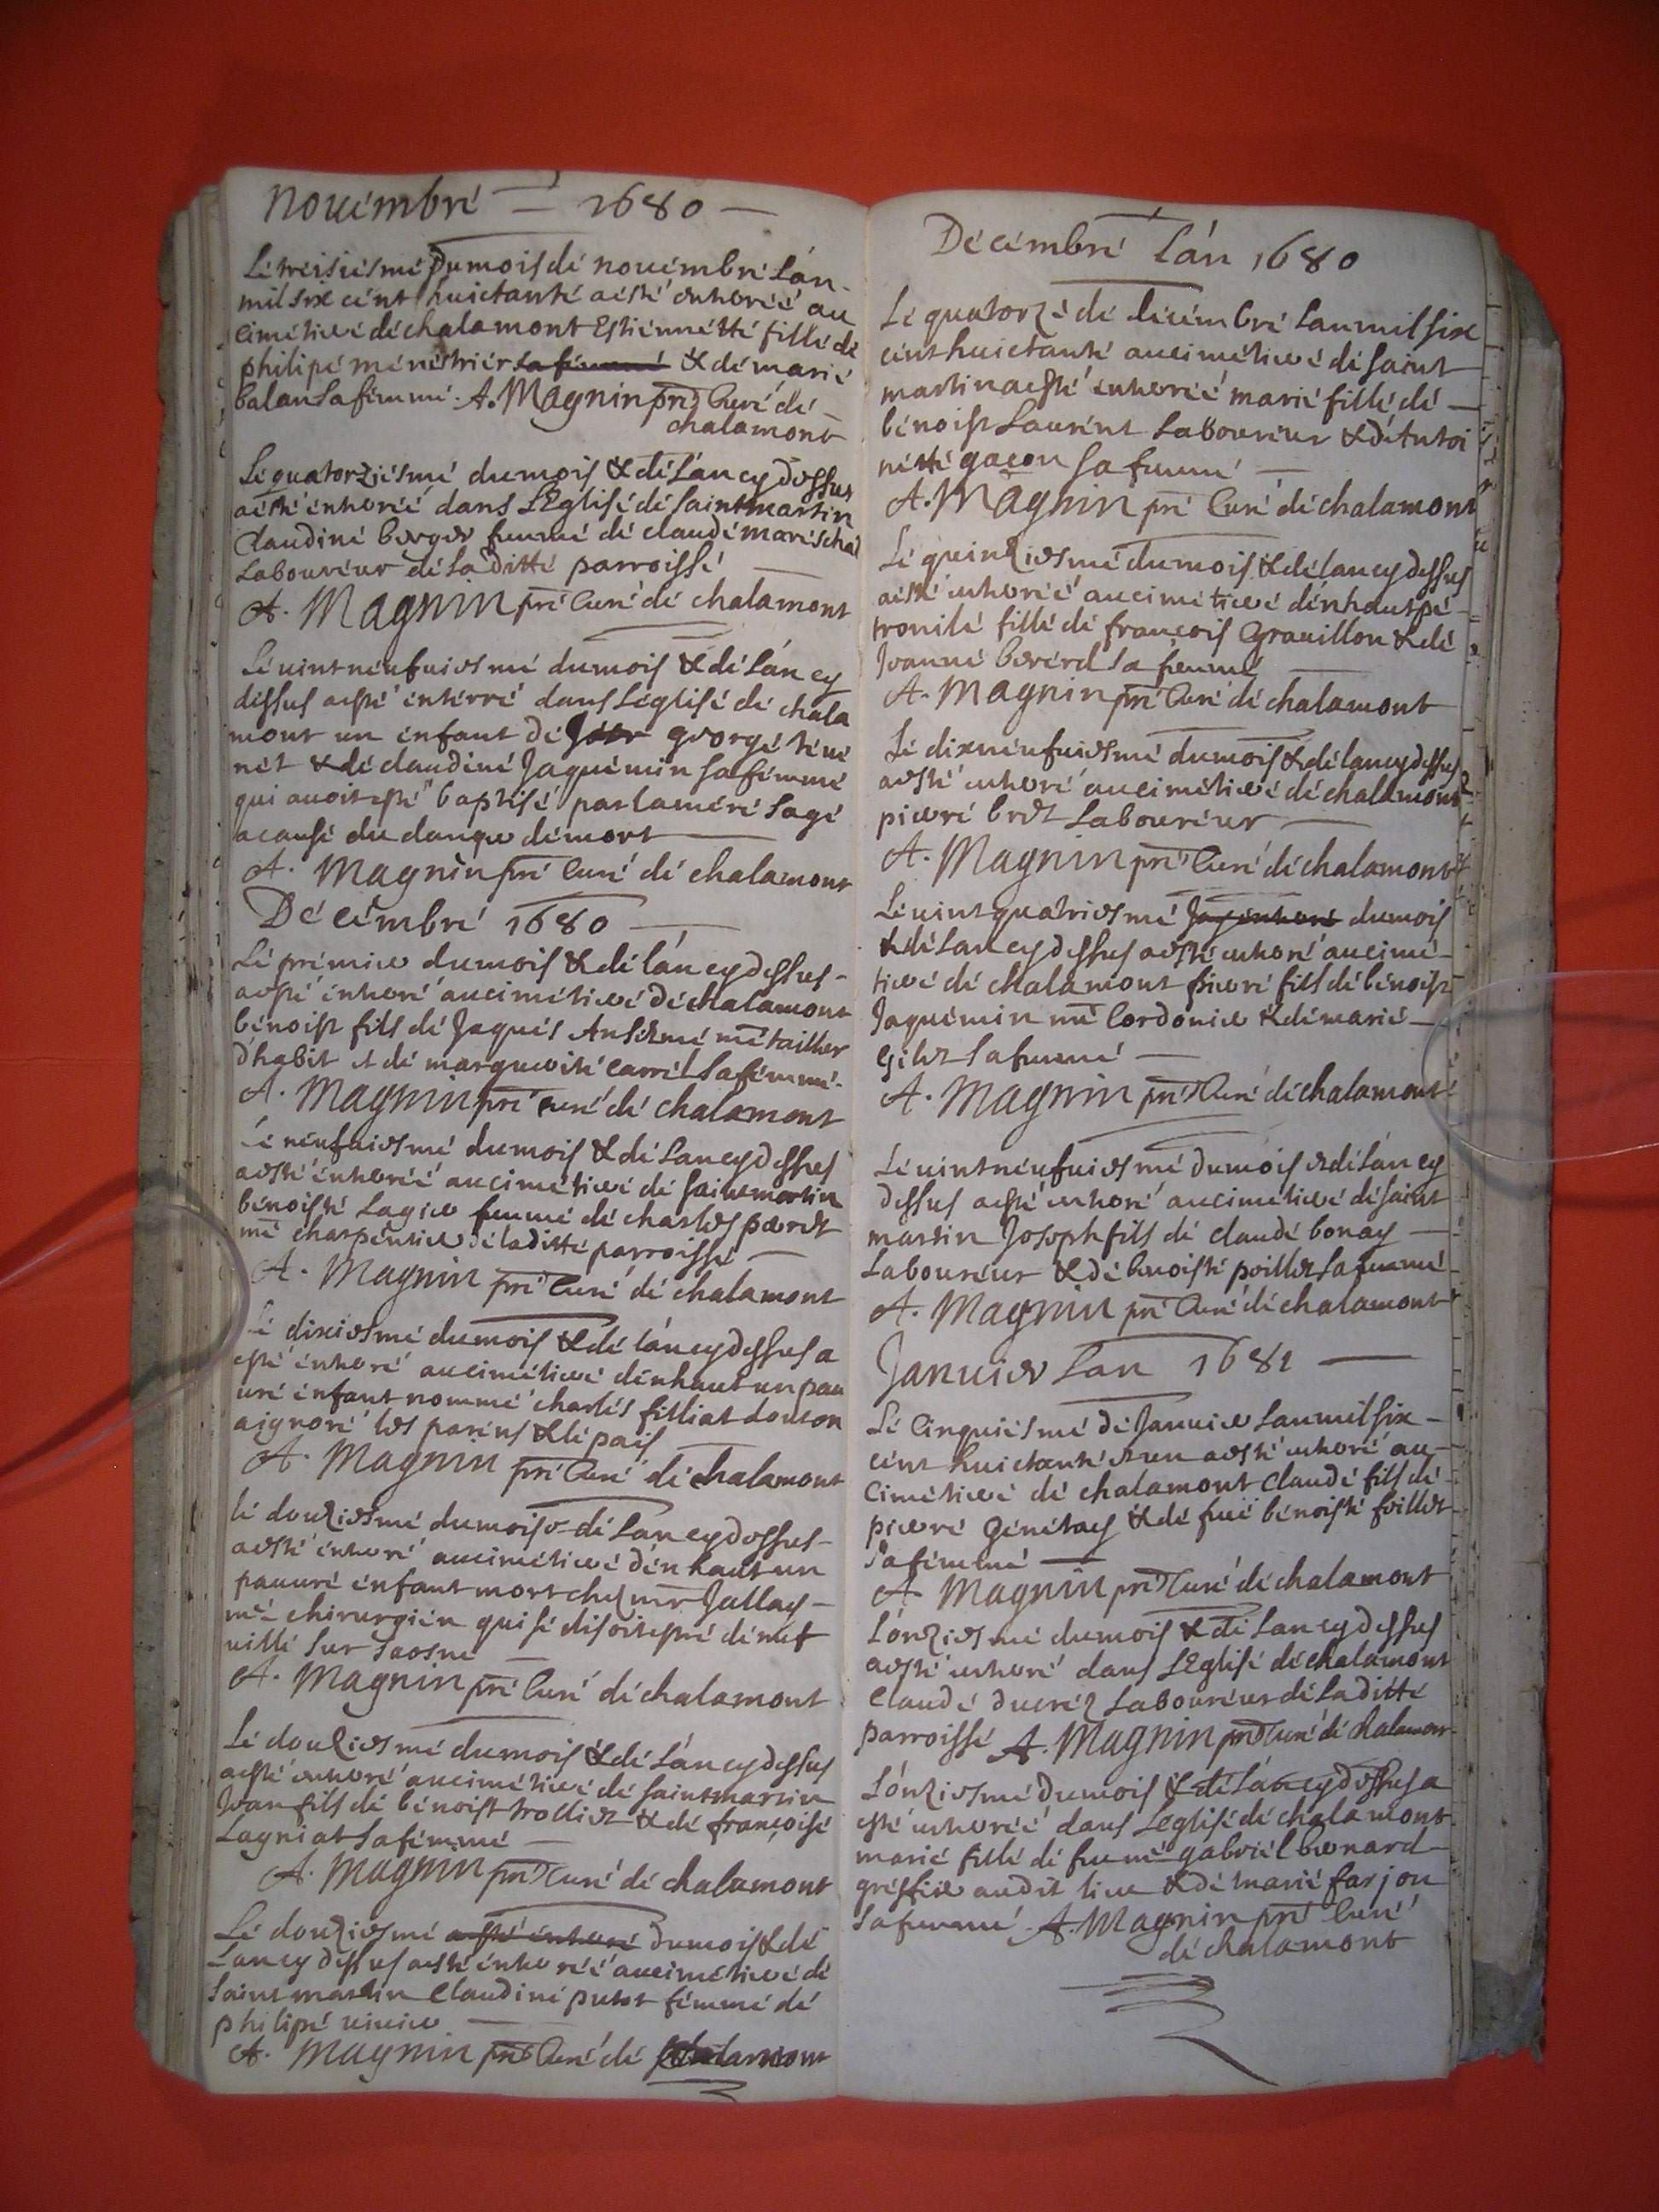 Nouémbré — 1680 —
Lé treisiésmé dumois dé nouémbré Lán
mil six cént huictanté aésté énterréé au
cimétieré dé chalamont Estiénnétté fillé dé
philipé ménéstriér sa fémmé & dé marié
balan sa fémmé. A. Magnin pré Curé dé
chalamont
Lé quatorziésmé dumois & dé Lán cy dessus
aésté énterréé dans LEglisé dé saint martin
Claudiné berger femmé dé claudé maréschal
Labouréur dé Laditté parroissé
A. Magnin pré Curé dé chalamont
Lé uintnéufuiesmé dumois & dé Lán cy
dessus aesté entérré dans Léglisé dé chala
mont un énfant dé georgé
nét & dé claudiné Jaquémin sa fémmé
qui auoit esté baptisé par laméré sagé
acausé du danger dé mort
A. Magnin pré Curé dé chalamont
Décémbré 1680
Lé prémier dumois & dé lán cy dessus
aesté énterré au cimétieré dé chalamont
bénoist fils dé Jaqués Ansélmé mé tailher
dhabit et dé marguerité carrél sa fémmé.
A. Magnin pré curé dé chalamont
Lé néufuiesmé dumois & dé Lan cy dessus
aesté énterréé au cimétieré dé saint martin
bénoisté Lagier femmé dé charles
mé charpéntier dé laditté parroissé
A. Magnin pré Curé dé chalamont
Lé dixiesmé dumois & dé lán cy dessus a
esté énterré au cimétieré dénhaut un pau
uré énfant nommé charlés filliat dont on
aignoré les paréns & lé pais
A. Magnin pré Curé dé chalamont
lé douziesmé dumois & dé Lan cy dessus
aesté énterré au cimétieré dénhaut un
pauuré énfant mort chez mr Jallay
mé chirurgién qui sé disoit estré dé neuf
uillé sur saosne
A. Magnin pré Curé dé chalamont
Lé douziesmé dumois & dé Lán cy dessus
aesté énterré au cimétieré dé saint martin
Jean fils dé bénoist trollier & dé françoisé
Lagniat sa fémmé
A. Magnin pré Curé dé chalamont
Lé douziesmé aesté énterré dumois & dé
Lan cy dessus aesté énterréé au cimétieré dé
saint martin Claudiné putet fémmé dé
philipé uiuier
A. Magnin pré Curé dé chalamont
Décémbré Lán 1680
Lé quatorzé dé décémbré Lan mil six
cént huictanté au cimétieré dé saint
martin aesté énterréé marié fillé dé
bénoist Laurént Labouréur & dé Antoi
nétté gaçon sa femmé
A. Magnin pré Curé dé chalamont
Lé quinziesmé dumois & dé lan cy dessus
aesté énterréé au cimétieré dénhaut pé
tronilé fillé dé françois Grauillon & dé
Jeanné berérd sa femmé
A. Magnin pré Curé dé chalamont
Lé dixnéufuiesmé dumois & dé lan cy dessus
aesté énterré au cimétieré dé chalamont
pierré bret Labouréur
A. Magnin pré Curé dé chalamont
Lé uintquatriesmé dumois
& dé Lan cy dessus aesté énterré au cimé
tieré dé chalamont pierré fils dé bénoist
Jaquémin mé Cordonier & dé marié
gilet sa femmé
A. Magnin pré Curé dé chalamont
Lé uintnéufuiesmé dumois & dé Lán cy
dessus aesté énterré au cimétieré dé saint
martin Joseph fils dé claudé bonay
Labouréur & dé bénoisté poillet sa femmé
A. Magnin pré Curé dé chalamont
Januier Lan 1681
Lé Cinquiésmé dé Januier Lan mil six
cént huictanté et un aesté énterré au
cimétieré dé chalamont Claudé fils dé
pierré Génétay & dé fuë bénoisté foillet
sa fémmé
A. Magnin pré Curé dé chalamont
Lónziesmé dumois & dé Lan cy dessus
aesté énterré dans LEglisé dé chalamont
Claudé ducréz Labouréur dé Laditté
parroissé A. Magnin pré Curé dé chalamont
Lónziesmé dumois & dé Lán cy dessus a
esté énterréé dans Léglisé dé chalamont
marié fillé dé fu mé gabriél bernard
gréffier audit lieu & dé marié farjon
sa femmé. A. Magnin pré Curé
dé chalamont